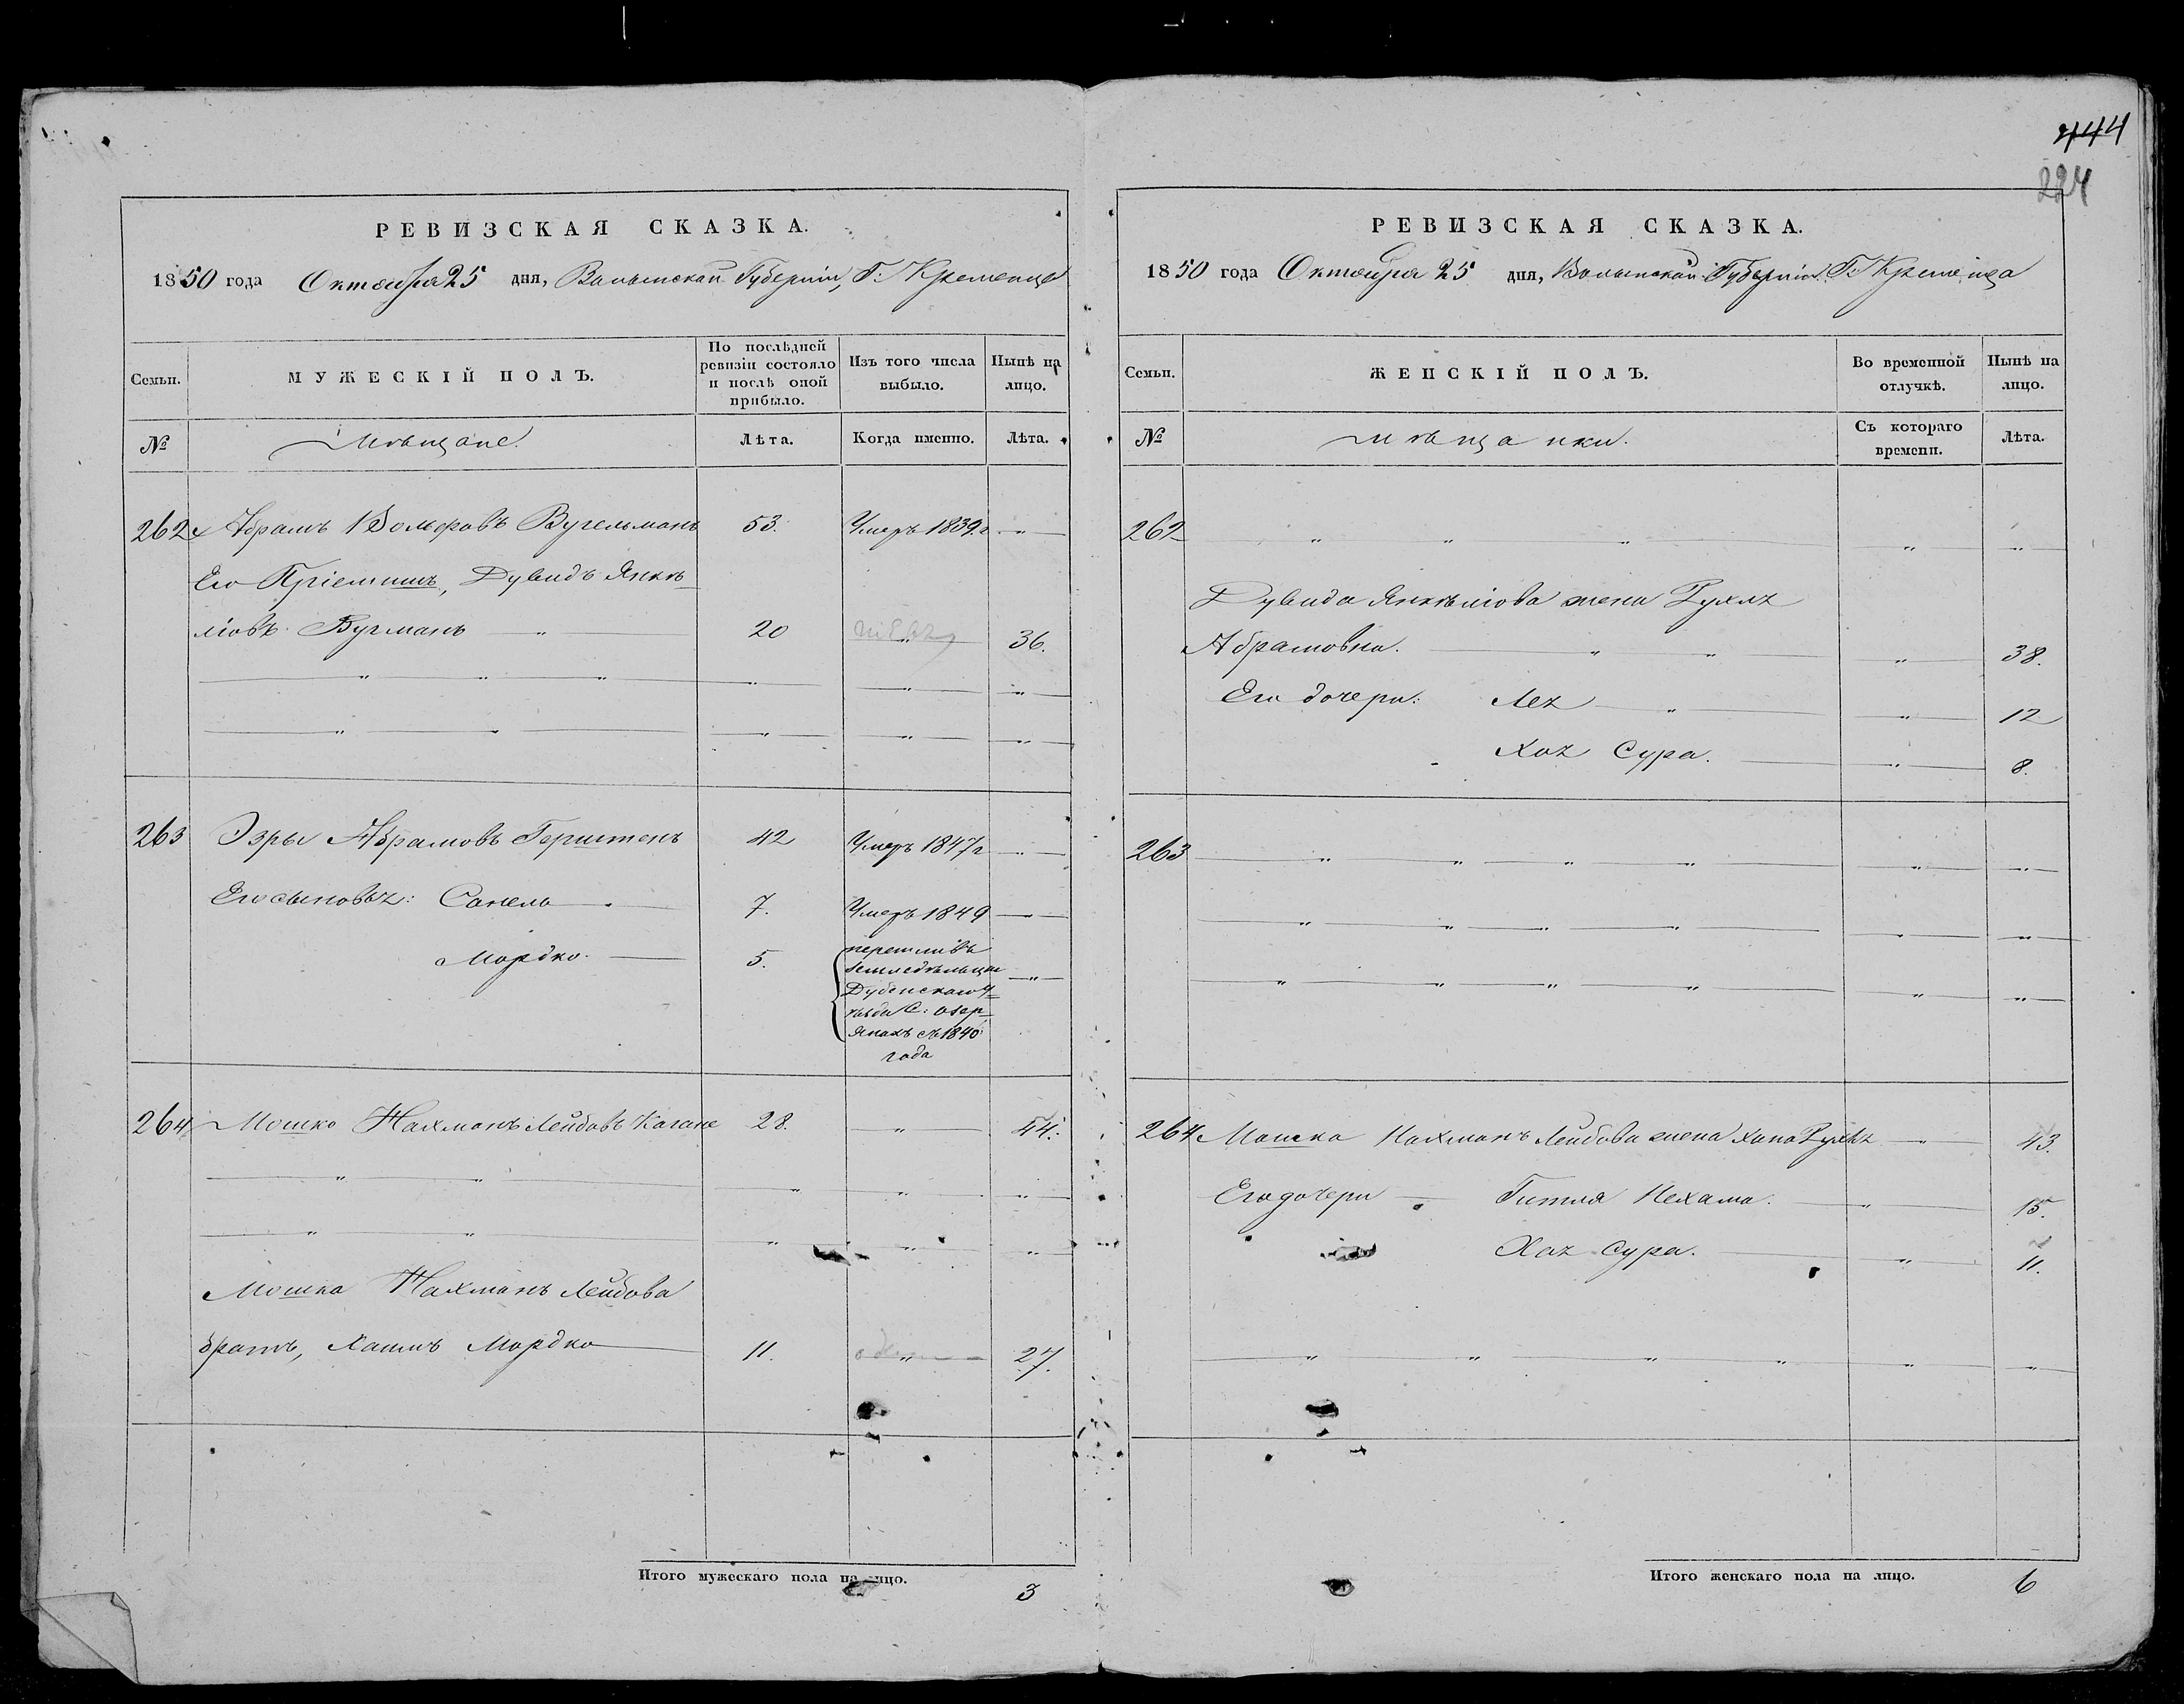 444
224
РЕВИЗСКАЯ СКАЗКА.
1850 года Октября 25 дня, Волынской Губерніи, Г: Кременца
Семьи. МУЖЕСКІЙ ПОЛЪ. По послѣдней ревизіи состояло и послѣ оной прибыло. Изъ того числа выбыло. Нынѣ на лицо.
№ Мѣщане. Лѣта. Когда именно. Лѣта.
262 Абрамъ Вольфовъ Вугельманъ 53. Умеръ 1839 г. — " —
Его Пріемышъ, Дувидъ Янкѣ-
ліовъ Вугманъ — " 20 " 36.
263 Эзры Абрамовъ Герштенъ 42 Умеръ 1847 г — " —
Его сыновья: Санель — 7. Умеръ 1849 — " —
Мордко. — 5. перешливъ — " —
земледѣльцы
Дубенскаго У-
ѣзда С: озер-
янахъ съ 1840
года
264 Мошко Нахманъ Лейбовъ Кагане 28. — " — 44.
Мошка Нахманъ Лейбова
братъ, Хаимъ Мордко — 11. " 27.
Итого мужескаго пола на лицо. 3
РЕВИЗСКАЯ СКАЗКА.
1850 года Октября 25 дня, Волынской Губерніи Г: Кременца
Семьи. ЖЕНСКІЙ ПОЛЪ. Во временной отлучкѣ. Нынѣ на лицо.
№ мѣщанки. Съ котораго времени. Лѣта.
262 — " — " — " — " — " —
Дувида Янкѣліова жена Рухля
Абрамовна. — " — " — " — 38.
Его дочери: Лея — " — " — 12
Хая Сура. — " — 8.
263 — " — " — " — " — " — " —
264 Мошка Нахманъ Лейбова жена Хана Рухля — " — 43.
Его дочери — Гитля Нехама. — " — 15.
Хая Сура. — " — 11.
Итого женскаго пола на лицо. 6